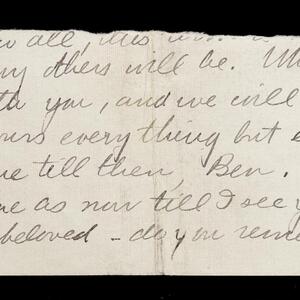 all, this
others will be.
you, and we will
everything but
till then, Ben.
as now till I see
beloved – do you